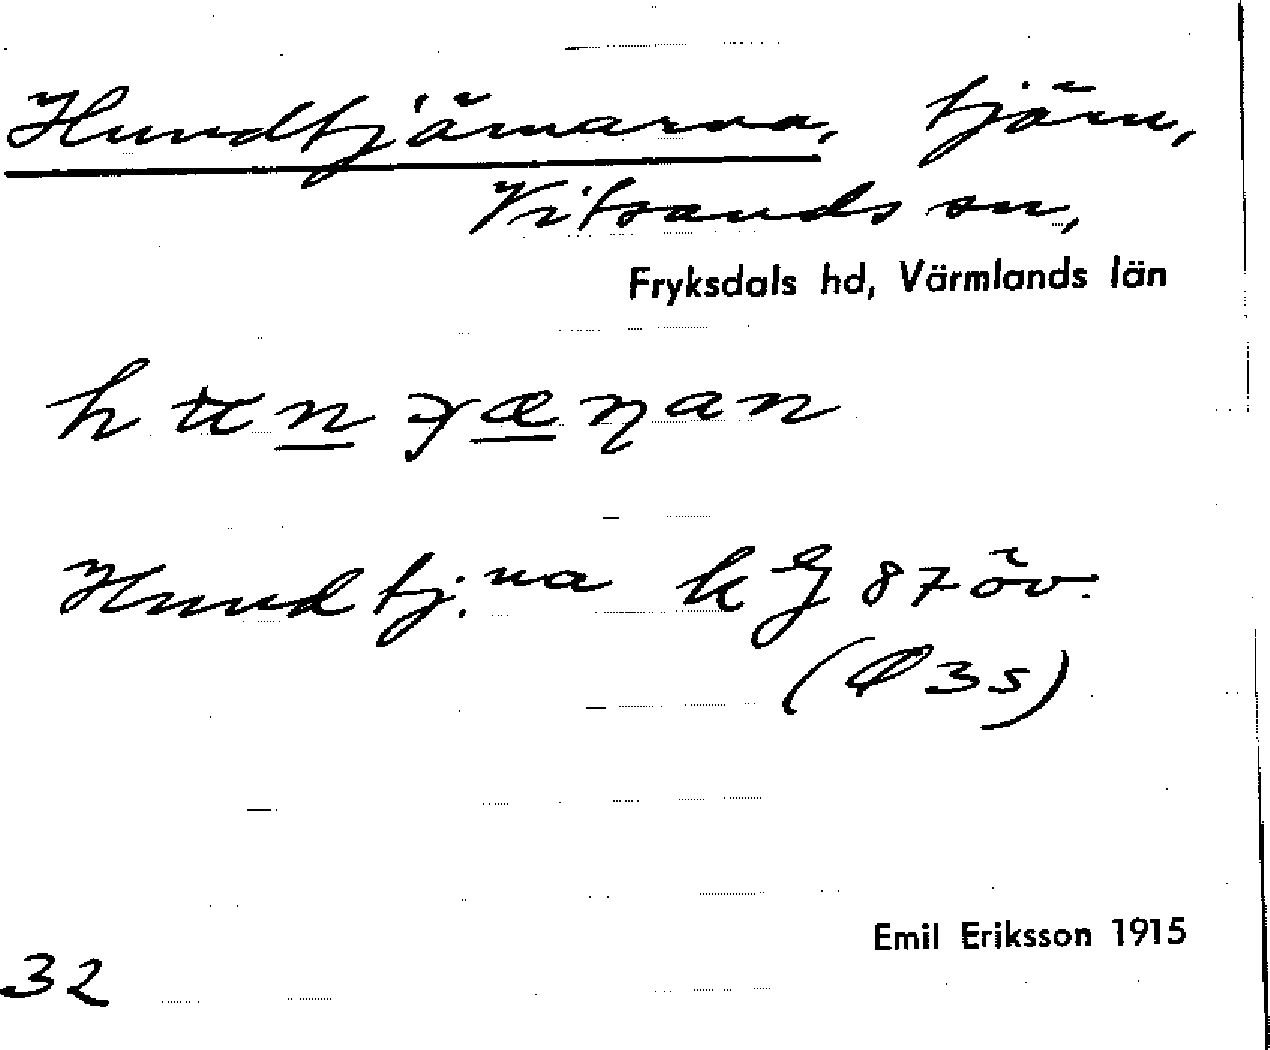 Hundtjärnarna, tjärn,
Vitsands sn,
Fryksdals hd, Värmlands län
Hundtj:na k G 87 öv.
(Ø 3 s)
Emil Eriksson 1915
32